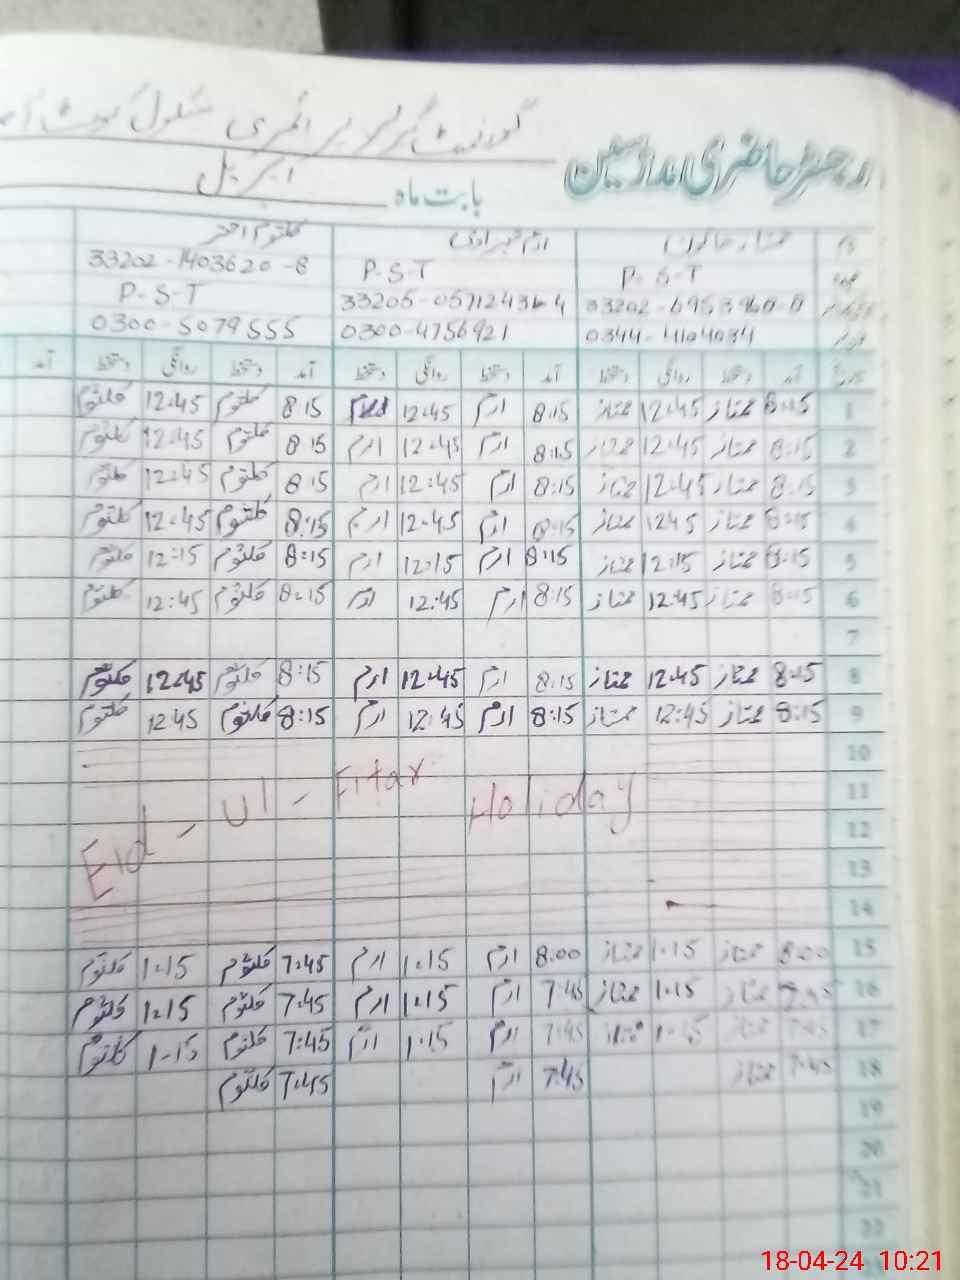 گورنمنٹ گرلز پرائمری سکول
رجسٹر حاضری مدارسین
بابت ماہ اپریل
نام ممتاز خاتون ارم شہزادی کلثوم اختر
عہدہ P-S-T P-S-T 33202-1403620-8
33205-0571243644 P-S-T
0344-4104034 0300-4756921 0300-5079555
تاریخ آمد دستخط روانگی دستخط آمد دستخط روانگی دستخط آمد دستخط روانگی دستخط آمد
1 8:15 ممتاز 12:45 ممتاز 8:15 ارم 12:45 ارم 8:15 کلثوم 12:45 کلثوم
2 8:15 ممتاز 12:45 ممتاز 8:15 ارم 12:45 ارم 8:15 کلثوم 12:45 کلثوم
3 8:15 ممتاز 12:45 ممتاز 8:15 ارم 12:45 ارم 8:15 کلثوم 12:45 کلثوم
4 8:15 ممتاز 1245 ممتاز 8:15 ارم 12:45 ارم 8:15 کلثوم 12:45 کلثوم
5 8:15 ممتاز 12:15 ممتاز 8:15 ارم 12:15 ارم 8:15 کلثوم 12:15 کلثوم
6 8:15 ممتاز 12:45 ممتاز 8:15 ارم 12:45 ارم 8:15 کلثوم 12:45 کلثوم
7
8 8:15 ممتاز 12:45 ممتاز 8:15 ارم 12:45 ارم 8:15 کلثوم 12:45 کلثوم
9 8:15 ممتاز 12:45 ممتاز 8:15 ارم 12:45 ارم 8:15 کلثوم 12:45 کلثوم
10
11
Eid-Ul-Fitar Holiday
12
13
14
15 8:00 ممتاز 1:15 ممتاز 8:00 ارم 1:15 ارم 7:45 کلثوم 1:15 کلثوم
16 7:45 ممتاز 1:15 ممتاز 7:45 ارم 1:15 ارم 7:45 کلثوم 1:15 کلثوم
17 7:45 ممتاز 1:15 ممتاز 7:45 ارم 1:15 ارم 7:45 کلثوم 1:15 کلثوم
18 7:45 ممتاز 7:45 ارم 7:45 کلثوم
19
20
21
22
18-04-24 10:21